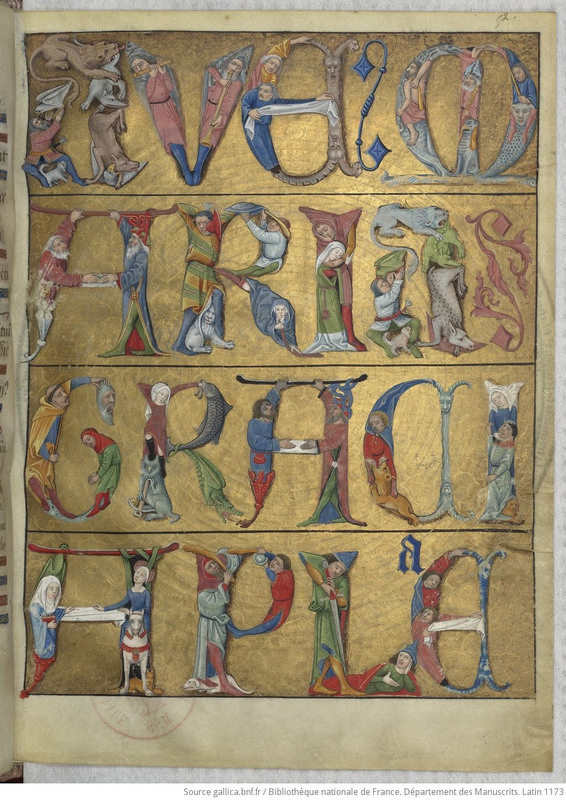 52.
AVE:M
ARIA
GRACI
a
APLE
Source gallica.bnf.fr / Bibliothèque nationale de France. Département des Manuscrits. Latin 1173